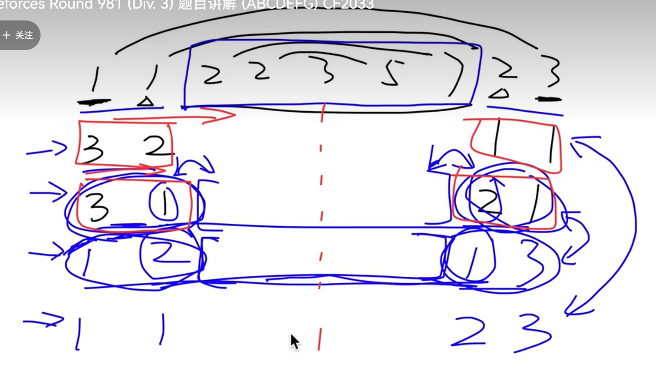 eforces Round 981 (Div. 3) 题目讲解 (ABCDEFG) CF2033
+ 关注
1 1 2 2 3 5 7 2 3
3 2 1 1
3 1 2 1
1 2 1 3
1 1 2 3